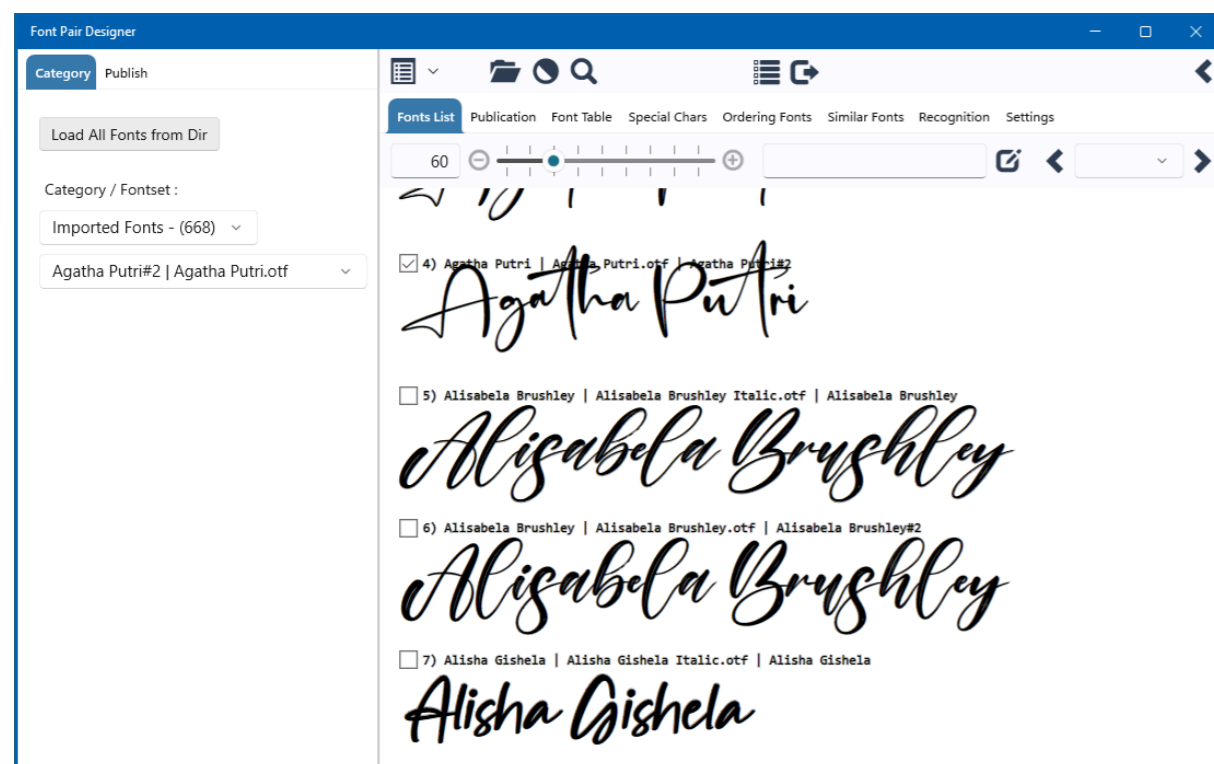 Font Pair Designer
Category Publish
Load All Fonts from Dir
Category / Fontset :
Imported Fonts - (668)
Agatha Putri#2 | Agatha Putri.otf
Fonts List Publication Font Table Special Chars Ordering Fonts Similar Fonts Recognition Settings
60
4) Agatha Putri | Agatha Putri.otf | Agatha Putri#2
Agatha Putri
5) Alisabela Brushley | Alisabela Brushley Italic.otf | Alisabela Brushley
Alisabela Brushley
6) Alisabela Brushley | Alisabela Brushley.otf | Alisabela Brushley#2
Alisabela Brushley
7) Alisha Gishela | Alisha Gishela Italic.otf | Alisha Gishela
Alisha Gishela